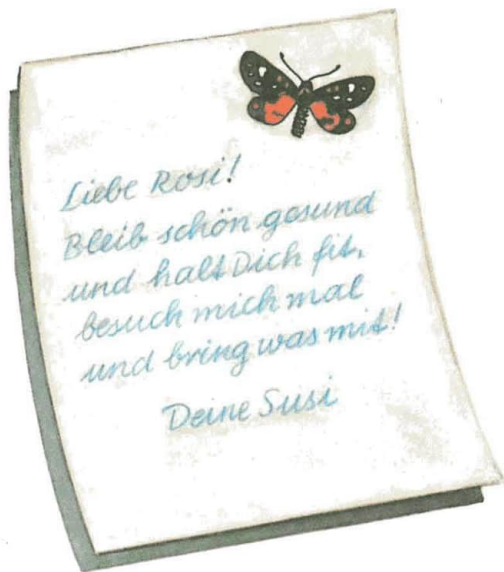 Liebe Rosi!
Bleib schön gesund
und halt Dich fit,
besuch mich mal
und bring was mit!
Deine Susi